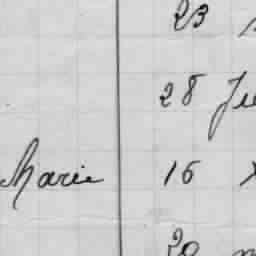 23
28 Ju
Marie 16
20